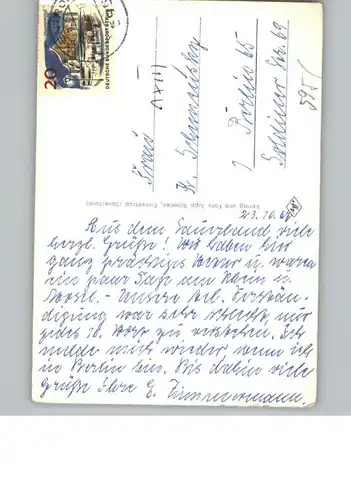 23. 10. 6
Aus dem Sauerland viele
herzl. Grüße! Wir haben hier
ganz prächtiges Wetter u. waren
ein paar Tage am Rhein u.
Mosel. - Unsere tel. Verstän-
digung war sehr schlecht, nur
jedes 10. Wort zu verstehen. Ich
melde mich wieder, wenn ich
in Berlin bin. Bis dahin viele
Grüße Ihre E. Zimmermann.
Frau
1 Berlin 65
Soldiner Str. 69
595
20
DEUTSCHE BUNDESPOST BERLIN
Verlag und Foto Schmies, Finnentrop (Sauerland)